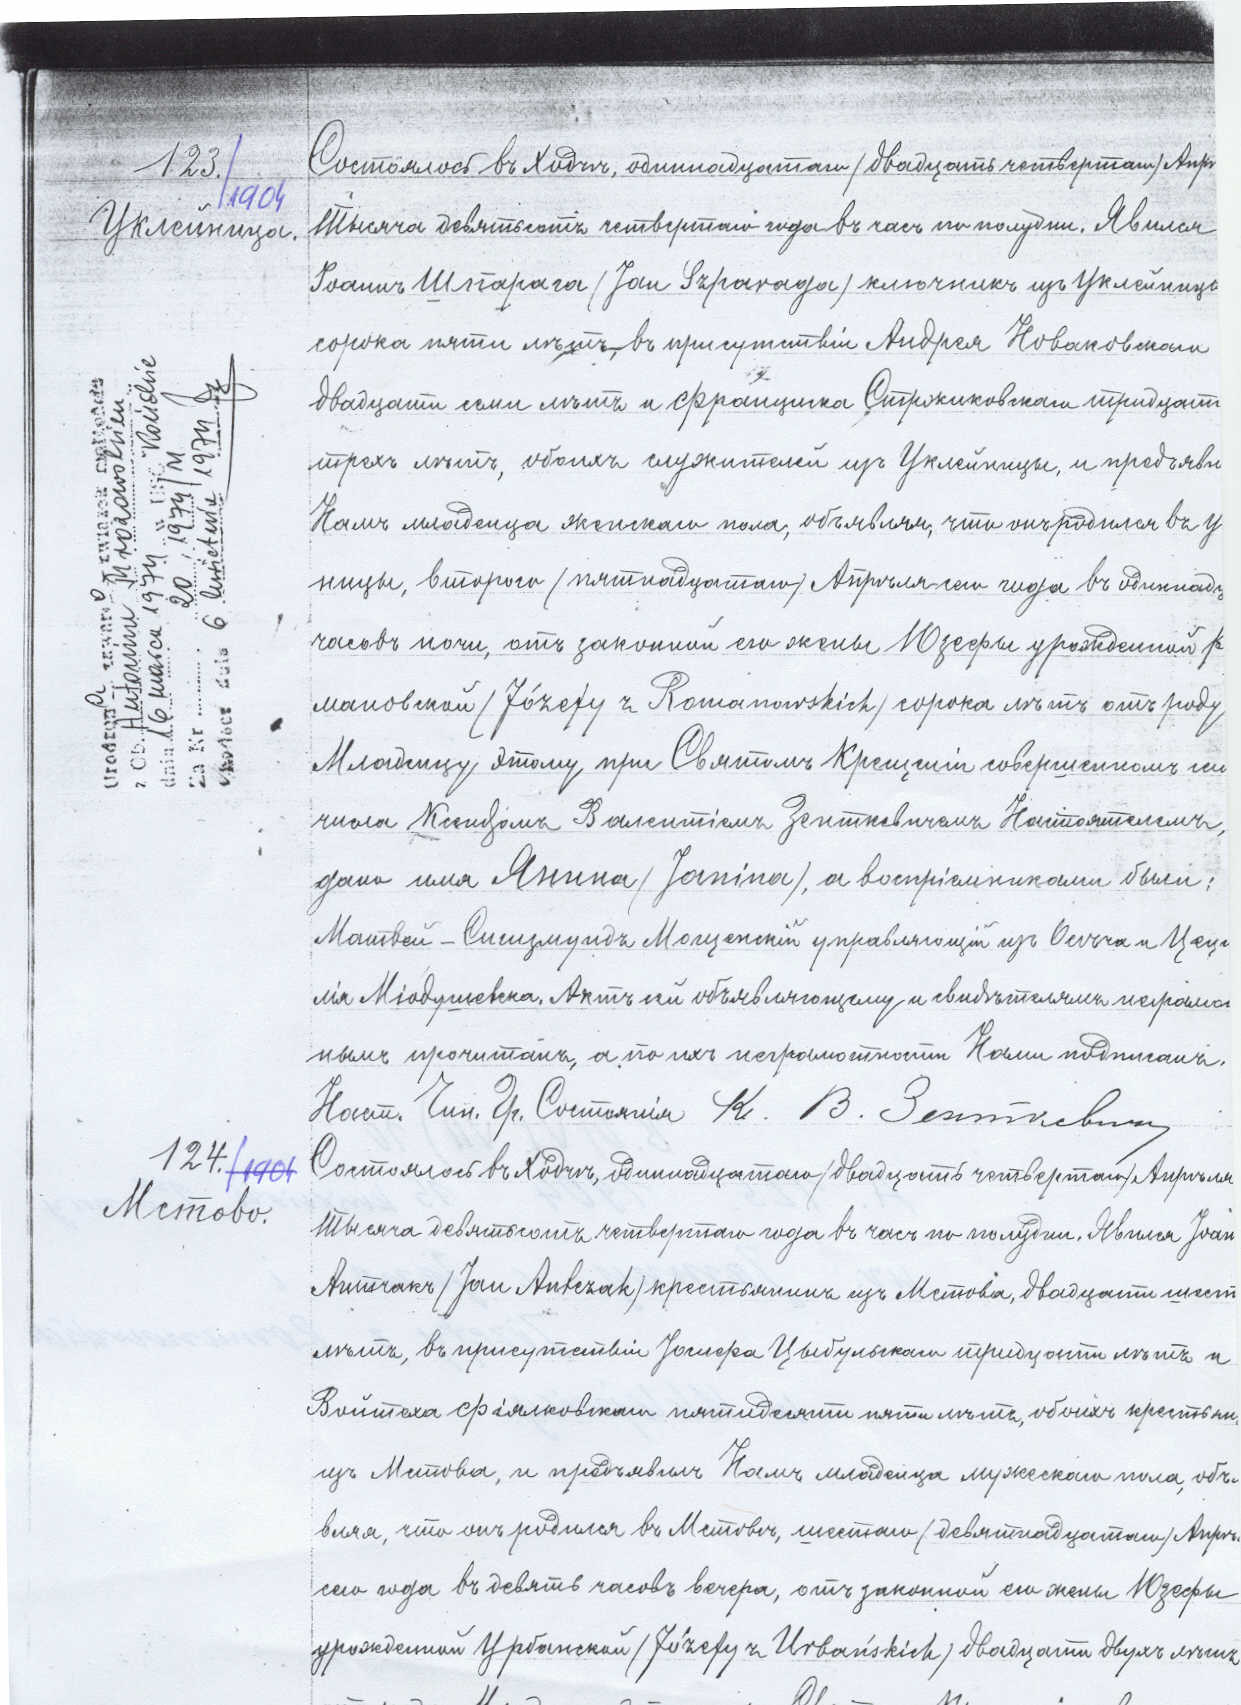 123./1904
Уклейница.
Состоялось въ Ходчѣ, одиннадцатаго /двадцать четвертаго/ Апрѣ
тысяча девятьсотъ четвертаго года въ часъ по полудни. Явился
Іоаннъ Шпарага /Jan Szparaga/ ключникъ изъ Уклейницы
сорока пяти лѣтъ, въ присутствіи Андрея Новаковскаго
двадцати семи лѣтъ и Франциска Стржиковскаго тридцати
трехъ лѣтъ, обоихъ служителей изъ Уклейницы, и предъяви
Намъ младенца женскаго пола, объявляя, что онъ родился въ У
ницы, второго /пятнадцатаго/ Апрѣля сего года въ одиннадц
часовъ ночи, отъ законной его жены Юзефы урожденной Р
мановской /Józefy z Romanowskich/ сорока лѣтъ отъ роду
Младенцу этому при Святомъ Крещеніи совершенномъ сего
числа Ксендзомъ Валентіемъ Зенткевичемъ Настоятелемъ,
дано имя Янина /Janina/, а воспріемниками были:
Матвей-Сигизмундъ Мощенскій управляющій изъ и Цеци
лія Міодушевска. Актъ сей объявляющему и свидѣтелямъ неграмот
нымъ прочитанъ, а по ихъ неграмотности Нами подписанъ.
Наст. Чин. Гр. Состоянія К. В. Зенткевичъ
Urodzona zawarła związek małżeński
z Ob. Antonim
dnia 16 marca 1974 w USC
Za Nr 20/1974/M
dnia 6 kwietnia 1974
124./1904
Мстово.
Состоялось въ Ходчѣ, одиннадцатаго /двадцать четвертаго/ Апрѣля
тысяча девятьсотъ четвертаго года въ часъ по полудни. Явился Іоан
Антчакъ /Jan Antczak/ крестьянинъ изъ Мстова, двадцати шести
лѣтъ, въ присутствіи Іосифа Цыбульскаго тридцати лѣтъ и
Войтеха Фіялковскаго пятидесяти пяти лѣтъ, обоихъ крестьян
изъ Мстова, и предъявилъ Намъ младенца мужескаго пола, объя
вляя, что онъ родился въ Мстовѣ, шестаго /девятнадцатаго/ Апрѣ
сего года въ девять часовъ вечера, отъ законной его жены Юзефы
урожденной Урбанской /Józefy z Urbańskich/ двадцати двухъ лѣтъ